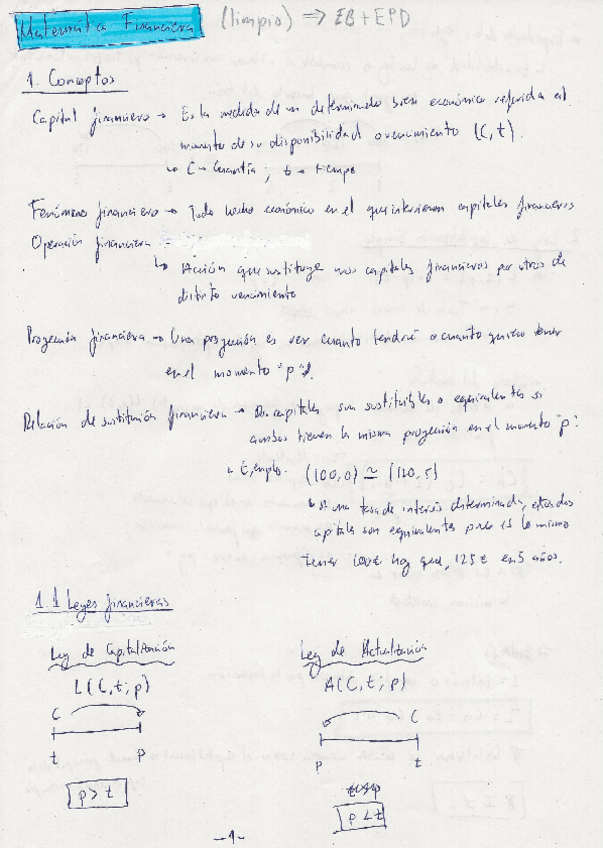 Matemática Financiera (limpio) ⇒ EB + EPD
1. Conceptos
Capital financiero → Es la medida de un determinado bien económico referida al
momento de su disponibilidad o vencimiento (C, t).
↳ C → Cuantía ; t → tiempo
Fenómeno financiero → Todo hecho económico en el que intervienen capitales financieros
Operación financiera
↳ Acción que sustituye unos capitales financieros por otros de
distinto vencimiento
Proyección financiera → Una proyección es ver cuanto tendré o cuanto quiero tener
en el momento "p".
Relación de sustitución financiera → Dos capitales son sustituibles o equivalentes si
ambos tienen la misma proyección en el momento "p".
Ejemplo. (100,0) ≃ (120,5)
↳ A una tasa de interés determinada, estos dos
capitales son equivalentes pues es lo mismo
tener 100€ hoy que, 125€ en 5 años.
1.1 Leyes financieras
Ley de Capitalización
L(C, t; p)
C
t p
p > t
Ley de Actualización
A(C, t; p)
C
p t
p < t
-1-